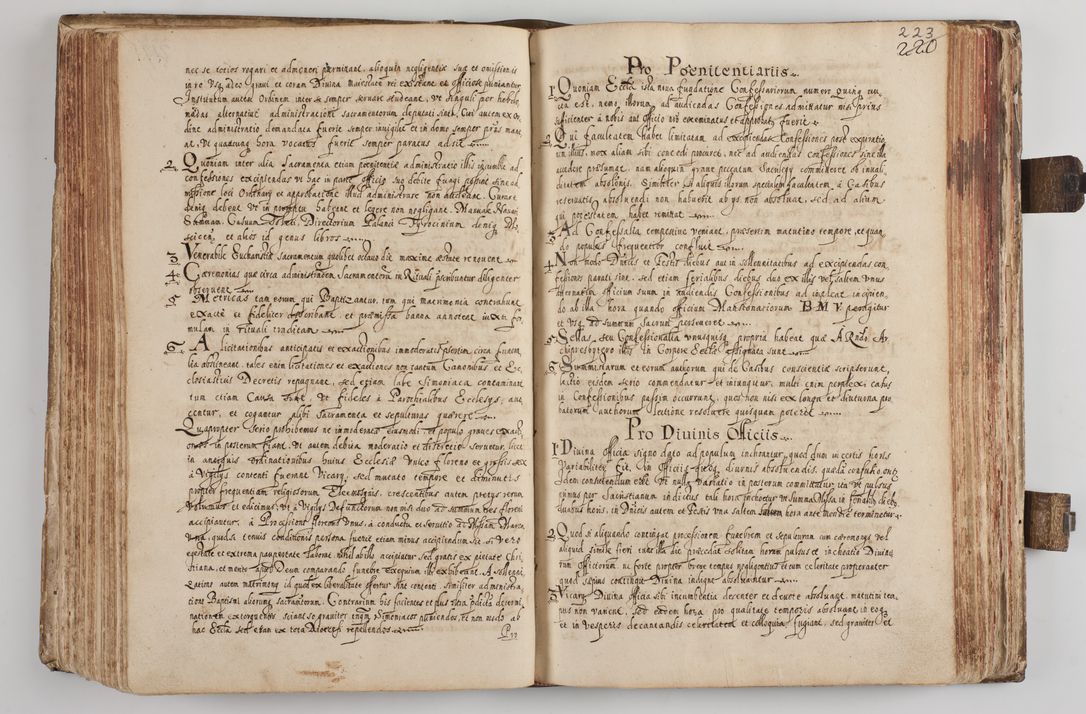 nec se totios rogari et admoneri permittant, alioquin negligentiæ suæ et omissionis
in re usq adeo gravi et coram Divina maiestate rei existant et officiose puniantur
Institutum autem Ordinem inter se semper servare studeant, ut singuli per hebdo
madas alternativè administrationi sacramentorum deputati sint. Cui autem ex or
dine administratio demandata fuerit semper invigilet et in domo semper præsto mane
at, ut quacunq hora vocatus fuerit semper paratus adsit
2. Quoniam inter alia Sacramenta etiam poenitentiæ administratio illis incumbit ad
confessiones excipiendas ut hac in parte officio suo debite fungi possint sine ad
missione loci Ordinarij et approbatione illud administrare non attentent. Curare
deniq debent ut in promptu habeant et legere non negligant Manuale Navarri
Summam Casuum Toleti, Directorium Polanci Tyrocinium deniq
et alios id genus libros
3. Venerabile Eucharistiæ Sacramentum quolibet octavo die maxime æstate renovent
4. Cæremonias quæ circa administrationem Sacramentorum in Rituali præscribuntur diligenter
observent
5. Metricas tam eorum qui Baptizantur, tum qui matrimonia contrahunt
exactè et fideliter describant, et præmissa banna annotent iuxta for
mulam in Rituali traditam
6. A licitationibus anticipatis et exactionibus immoderatis præsertim circa funera
lia abstineant, tales enim licitationes et exactiones non tantum Canonibus et Ec
clesiasticis Decretis repugnant, sed etiam labe Simoniaca contaminant
tum etiam Causa sunt, ut fideles à Parochialibus Ecclesijs, avo
centur, et cogantur alibi Sacramenta et sepulturas quærere
Quapropter serio prohibemus ne immoderatæ eiusmodi et populo graves exacti
ones in posterum fiant, ut autem debita moderatio et discretio servetur, licet
in antiquis ordinationibus huius Ecclesiæ Unico floreno et grossis sex
à Vigilijs contenti fuerant Vicarij, sed mutato tempore et diminutis
propter frequentiam religiosorum Eleemosynis, crescentibus autem pretijs rerum
volumus et edicimus, ut à Vigilijs Defunctorum non nisi duo ad summum tres floreni
accipiantur, à Processione florenus Unus, à conductu et servitio ad Missam Marca
una, quod si tenuis conditionis persona fuerit etiam minus accipiendum sit, si vero
egestate et extrema paupertate laborat nihil ab illo accipiatur sed gratis ex pietate Chri
stiana, et mente apud Deum comparando funebre exequium illi exhibeant. A sollenni
zatione autem matrimonij id quod ex liberalitate offertur sint contenti, similiter administra
tione Baptismi aliorumq sacramentorum. Contrarium his facientes et plus ultra prædictam determi
nationem extorquentes sciant se graviter tanquam Simoniacos puniendos, et non modo ab
hac Ecclia sed etiam ex tota Dioecesi repellendos
Pro
223
220
Pro Poenitentiariis
1. Quoniam Ecclæ ista nova fundatione Confessariorum numero quinq au
cta est, nemo illorum ad audiendas Confessiones admittatur nisi prius
sufficienter à nobis aut officio nro examinatus et approbatus fuerit
2. Qui facultatem habet limitatam ad excipiendas Confessiones post expiratio
nem illius, mox aliam sibi concedi procuret, nec ad audiendas confessiones sine illa
accedere præsumat, nam alioquin grave peccatum Sacrilegij committeret ob invali
ditatem absolutionis. Similiter si aliquis illorum specialem facultatem à Casibus
reservatis absolvendi non habuerit ab ijs non absolvat, sed ad alium
qui potestatem habet remittat
3. Ad Confessalia tempestive veniant, præsertim matutino tempore, et quan
do populus frequentior confluit
4. Non modo Dnicis et Festis diebus aut in sollennitatibus ad excipiendas con
fessiones parati sint, sed etiam ferialibus diebus duo ex illis vel saltem unus
alternatim officium suum in audiendis Confessionibus ad impleat incipien
do ab illa hora quando officium Mansionariorum B M V peragitur
et usq ad summum Sacrum perseveret
5. Sellas, seu Confessionalia unusquisq propria habeat quæ à Rndo Ar
chipresbytero illis in Corpore Ecclæ assignata sunt
6. Summistarum et eorum authorum qui de Casibus conscientiæ scripserunt,
lectio eisdem serio commendatur et iniungitur, multi enim perplexi casus
in Confessionibus passim occurrunt, quos non nisi ex longa et diuturna pro
batorum authorum lectione resolvere quisquam poterit
Pro Diuinis Officiis
1. Divina officia signo dato ad populum inchoantur, quod dum incertis horis
variabiliter fit, in officijs quoq divinis absolvendis, quædam confusio
Idem constituendum esse ut nulla variatio in posterum committatur, ita ut pulsus
primus per Sacristianum indictus tali hora inchoetur ut Summa Missa in ferialibus diebus
duabus horis, in Dnicis autem et Festis una saltem hora ante meridiem terminetur
2. Quod si aliquando contingat processionem funerum et sepulturam cum cæremonijs vel
aliquid simile fieri tunc illa die præcedat solitam horam pulsus et inchoatio Divino
rum Officiorum, ne forte propter breve tempus negligentius et cum celeritate properanter
quod sæpius contingit Divina indigne absolvantur
3. Vicarij Divina officia sibi incumbentia decenter et devote absolvant, matutini tem
pus non varient, sed eadem hora pro qualitate temporis absolvant, in eoq
et in vesperis decantandis celeritatem et colloquia fugiant, sed graviter et